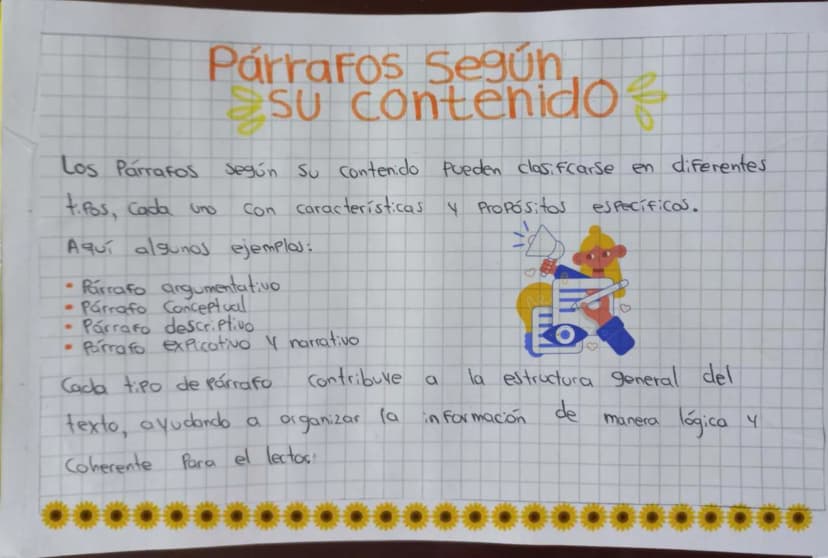 Párrafos Según
su contenido
Los Párrafos según su contenido Pueden clasificarse en diferentes
tipos, cada uno con características y Propósitos específicos.
Aquí algunos ejemplos:
• Párrafo argumentativo
• Párrafo Conceptual
• Párrafo descriptivo
• Párrafo explicativo y narrativo
Cada tipo de párrafo contribuye a la estructura general del
texto, ayudando a organizar la información de manera lógica y
Coherente Para el lector.